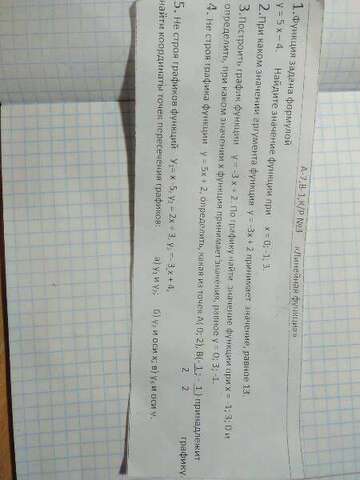 А-7,В-1,К/Р №3 «Линейная функция»
1.Функция задана формулой
y = 5 x – 4. Найдите значение функции при x = 0; -1; 3.
2.При каком значении аргумента функция y = -3x + 2 принимает значение, равное 13
3.Построить график функции y = -3 x + 2. По графику найти значение функции при x = -1; 3; 0 и
определить, при каком значении x функция принимает значения, равное y = 0; 3; -1.
4. Не строя графика функции y = 5x + 2, определить, какая из точек А( 0; 2), В(- 1/2 ; - 1/2 ) принадлежит
графику
5. Не строя графиков функций y₁= x -5, y₂ = 2x + 3, y₃ = - 3 x + 4,
найти координаты точек пересечения графиков: а) y₁ и y₂, б) y₂ и оси x; в) y₃ и оси y.